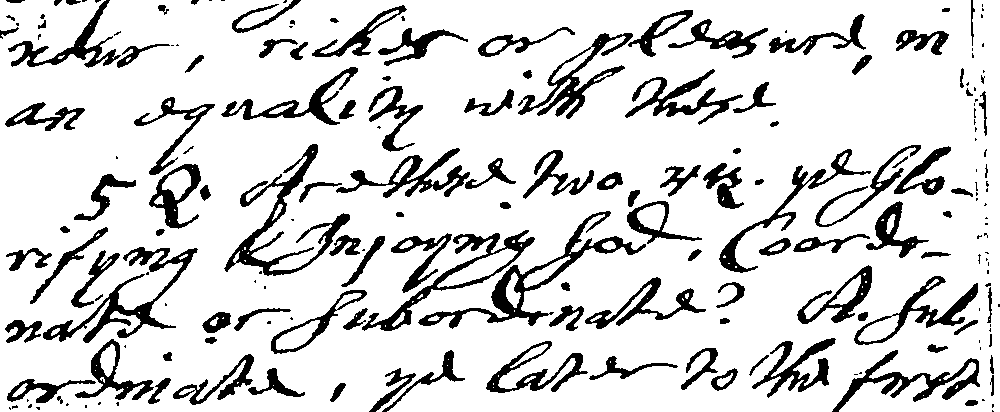 nour, riches or pleasure, in
an equality with these.
5 Q. Are these two, viz. ye Glo-
rifying & Injoying God, Coordi-
nate or subordinate? A. sub-
ordinate, ye later to the first.